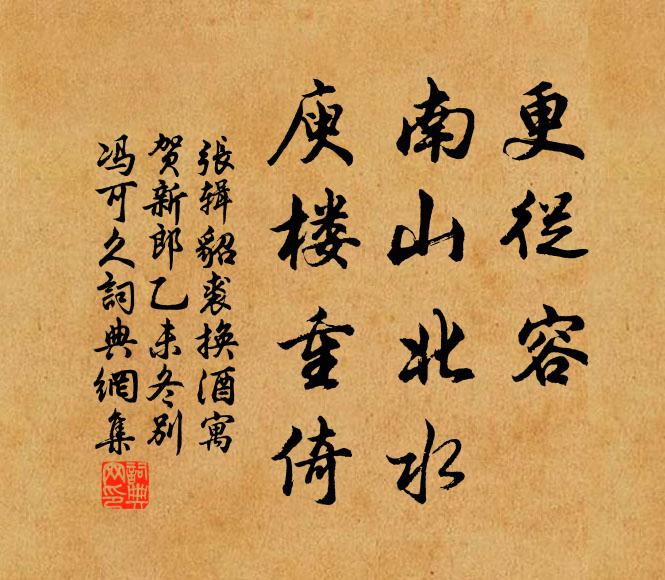 更從容
南山北水
庾楼重倚
張辑貂裘换酒寓
贺新郎乙未冬别
冯可久詞典網集
詞典網印